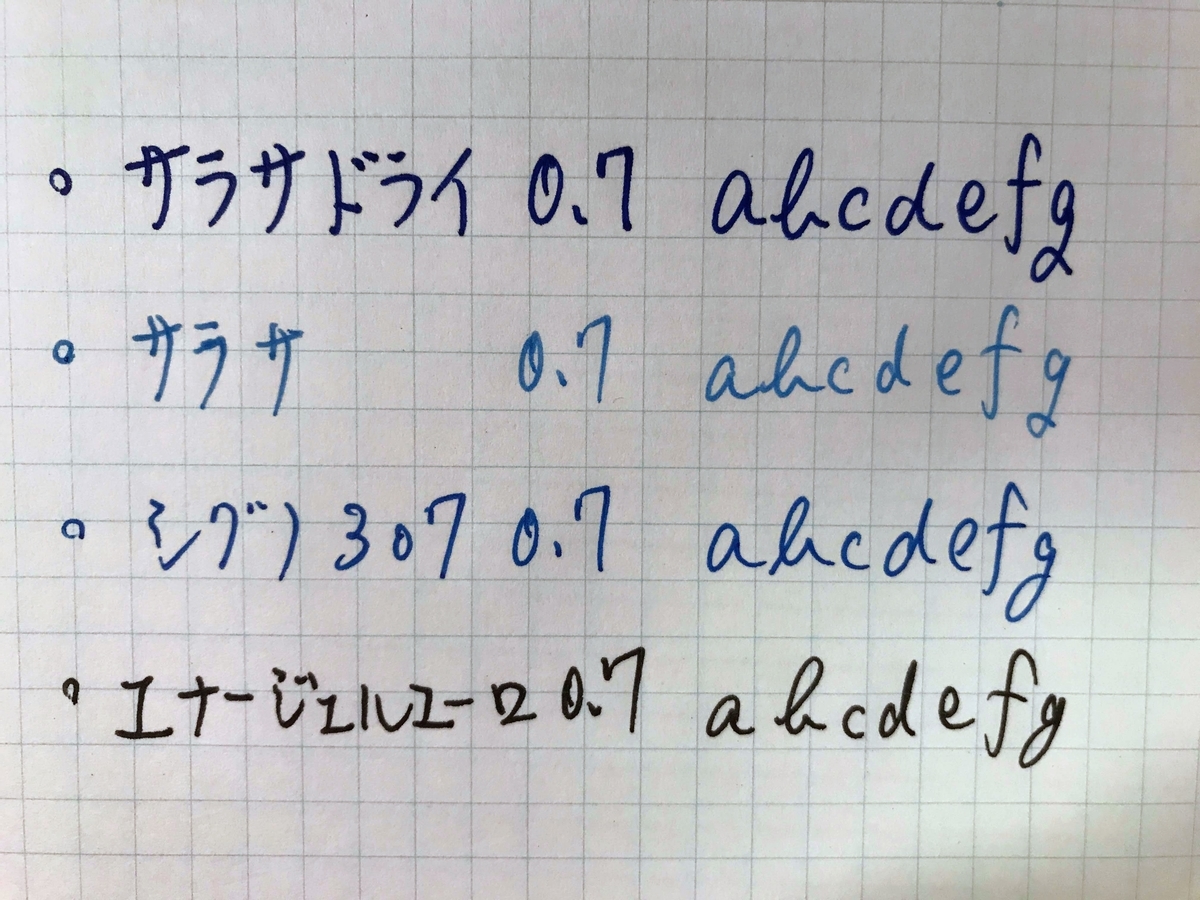 。サラサドライ 0.7 abcdefg
。サラサ 0.7 abcdefg
。シグノ 307 0.7 abcdefg
。エナージェルユーロ 0.7 abcdefg